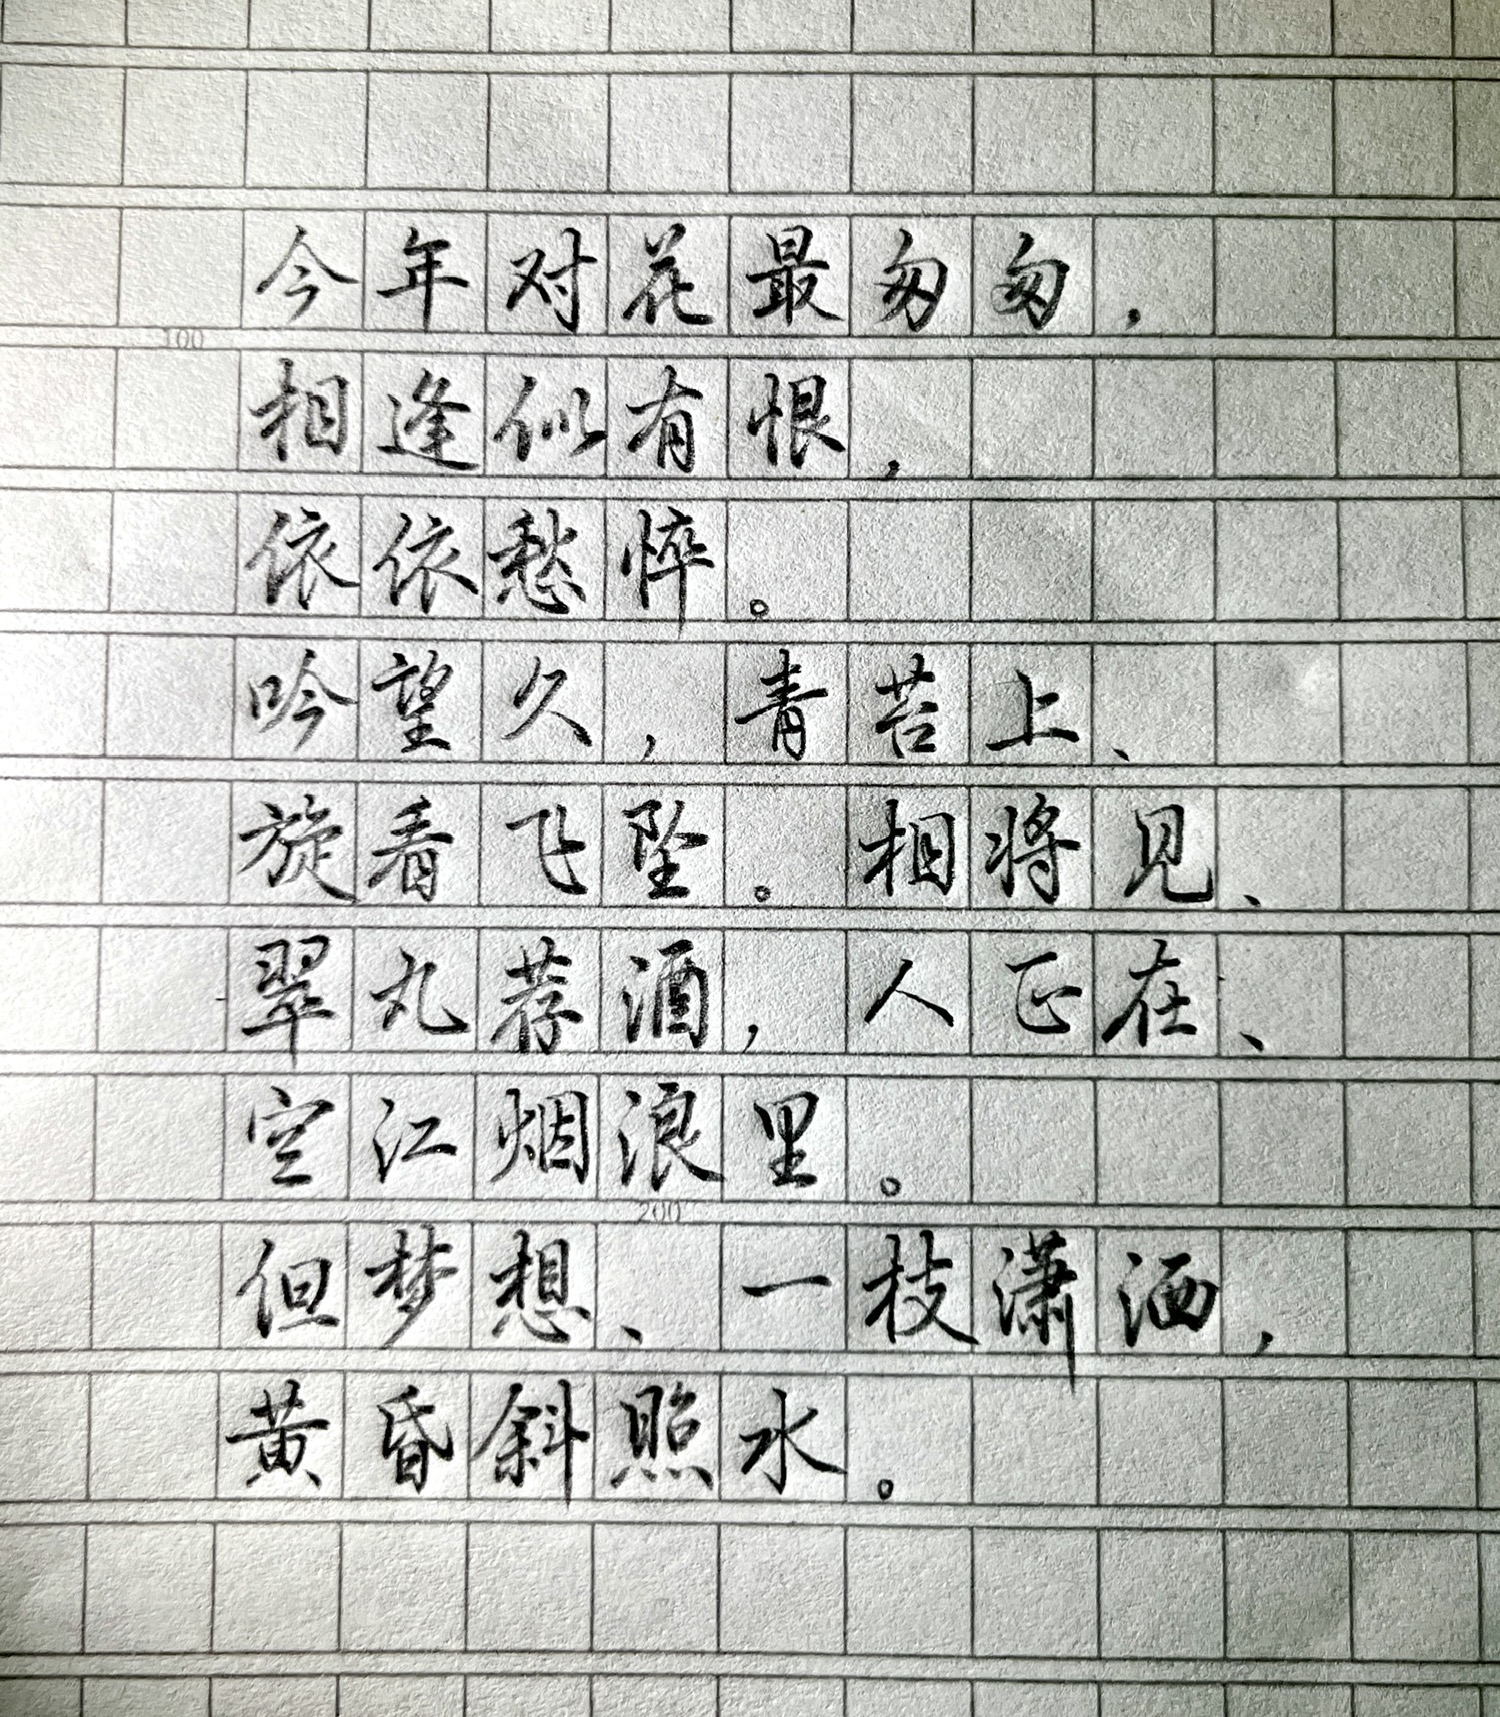 今年对花最匆匆，
100
相逢似有恨，
依依愁悴。
吟望久，青苔上、
旋看飞坠。相将见、
翠丸荐酒，人正在、
空江烟浪里。
200
但梦想、一枝潇洒，
黄昏斜照水。